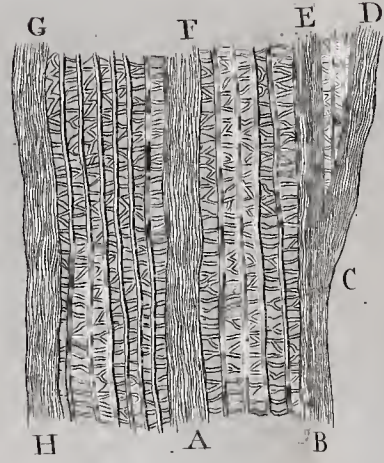 G F E D
C
H A B